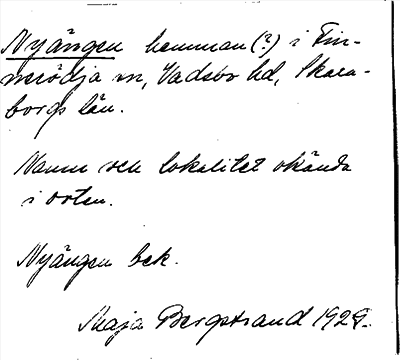 Nyängen hemman (?) i Fin-
nerödja sn, Vadsbo hd, Skara-
borgs län.
Namn och lokalitet okända
i orten.
Nyängen bek.
Maja Bergstrand 1929.